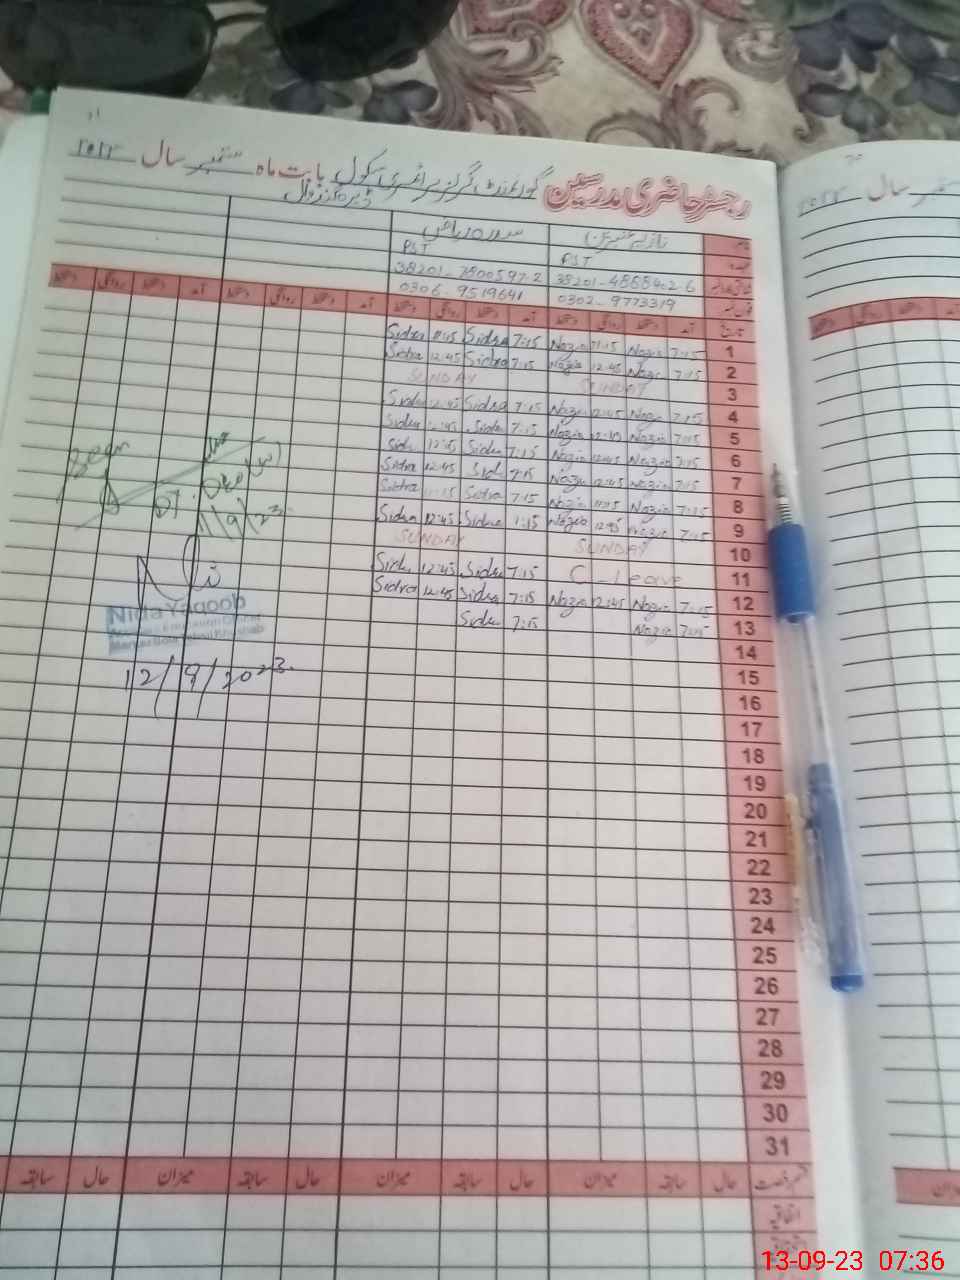 رجسٹر حاضری مدرسین گورنمنٹ گرلز پرائمری سکول بابت ماہ ستمبر سال ۲۰۲۳
نازیہ عنبرین سدرہ ریاض
PST PST
38201-4668402-6 38201-7800597-2
0302-9773319 0306-9519641
تاریخ آمد دستخط روانگی دستخط آمد دستخط روانگی دستخط آمد دستخط روانگی دستخط آمد دستخط روانگی دستخط
Sidra 11:15 Sidra 7:15 Nazia 11:15 Nazia 7:15 1
Sidra 12:45 Sidra 7:15 Nazia 12:45 Nazia 7:15 2
SUNDAY SUNDAY 3
Sidra 12:45 Sidra 7:15 Nazia 12:45 Nazia 7:15 4
Sidra 12:45 Sidra 7:15 Nazia Nazia 7:15 5
Sidra 12:45 Sidra 7:15 Nazia 12:45 Nazia 7:15 6
Sidra 12:45 Sidra 7:15 Nazia 12:45 Nazia 7:15 7
Sidra 11:15 Sidra 7:15 Nazia 11:15 Nazia 7:15 8
Sidra 12:45 Sidra 7:15 Nazia 12:45 Nazia 7:15 9
SUNDAY SUNDAY 10
Sidra 12:45 Sidra 7:15 C-Leave 11
Sidra 12:45 Sidra 7:15 Nazia 12:45 Nazia 7:15 12
Sidra 7:15 Nazia 7:15 13
14
15
16
17
18
19
20
21
22
23
24
25
26
27
28
29
30
31
Seen
11/9/23
Nida Yaqoob
12/9/2023
قسم رخصت حال سابقہ میزان حال سابقہ میزان حال سابقہ میزان حال سابقہ
اتفاقیہ
ستمبر سال ۲۰۲۳
13-09-23 07:36